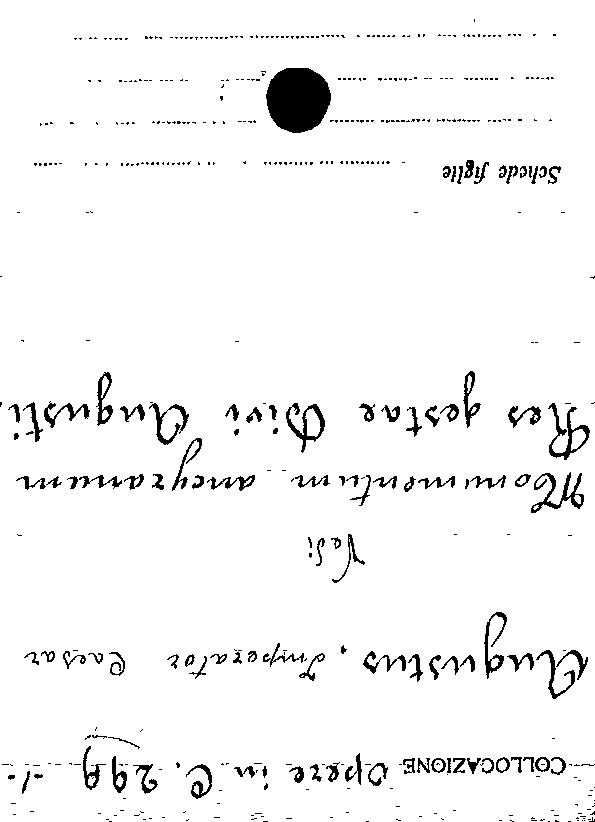 COLLOCAZIONE Opere in C. 299 -1-
Augustus, Imperator Caesar
Vedi
Monumentum ancyranum
Res gestae Divi Augusti.
Schede figlie